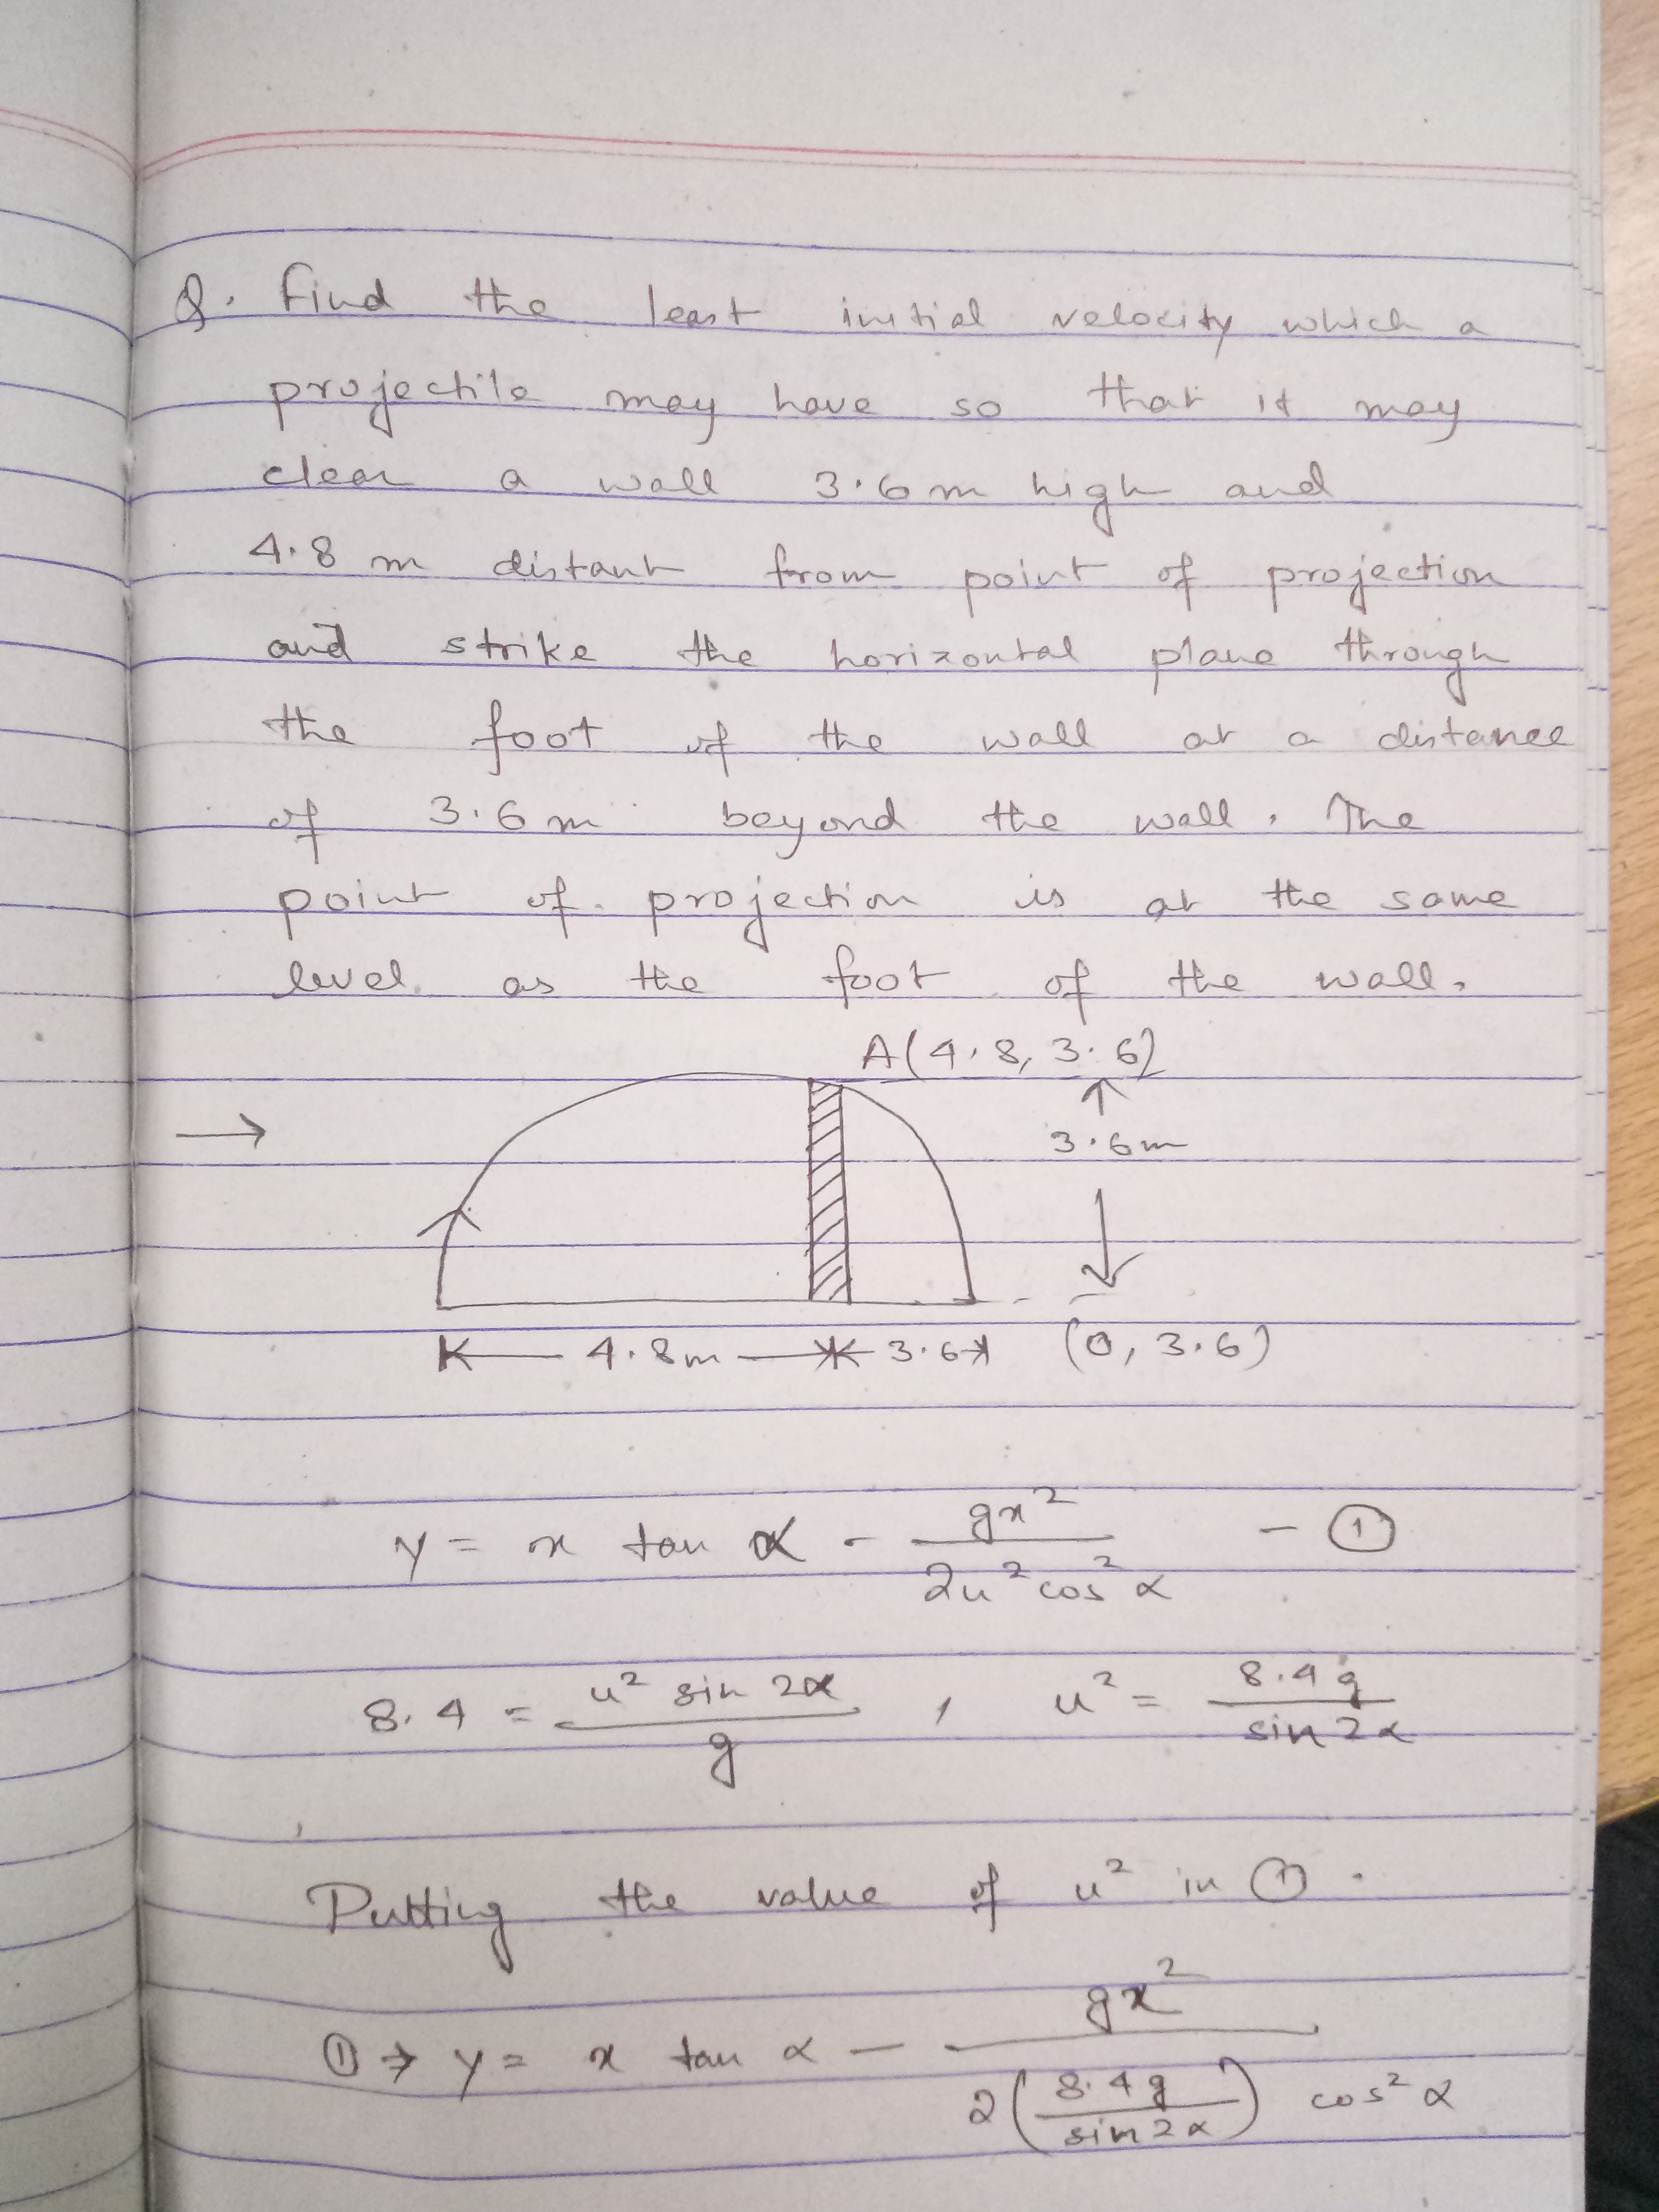 Q. Find the least initial velocity which a
projectile may have so that it may
clear a wall 3.6 m high and
4.8 m distant from point of projection
and strike the horizontal plane through
the foot of the wall at a distance
of 3.6 m beyond the wall. The
point of projection is at the same
level as the foot of the wall.
A(4.8, 3.6)
→
3.6m
4.8m 3.6 (0, 3.6)
y = x tan α - gx²/2u²cos²α - ①
8.4 = u² sin 2α/g , u² = 8.4g/sin 2α
Putting the value of u² in ①.
① ⇒ y = x tan α - gx²/2(8.4g/sin 2α) cos² α